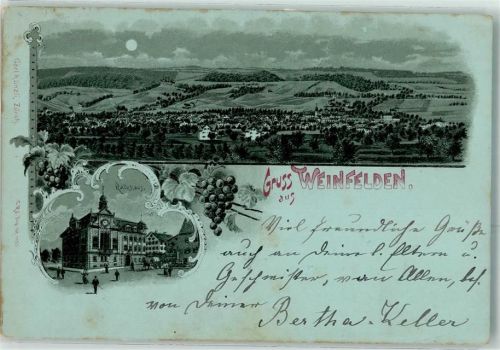 Gruss aus WEINFELDEN.
Rathaus.
Viel freundliche Grüße
auch an deine l. Eltern u.
Geschwister, von Allen, bes.
von deiner
Bertha-Keller
Carl Künzli, Zürich